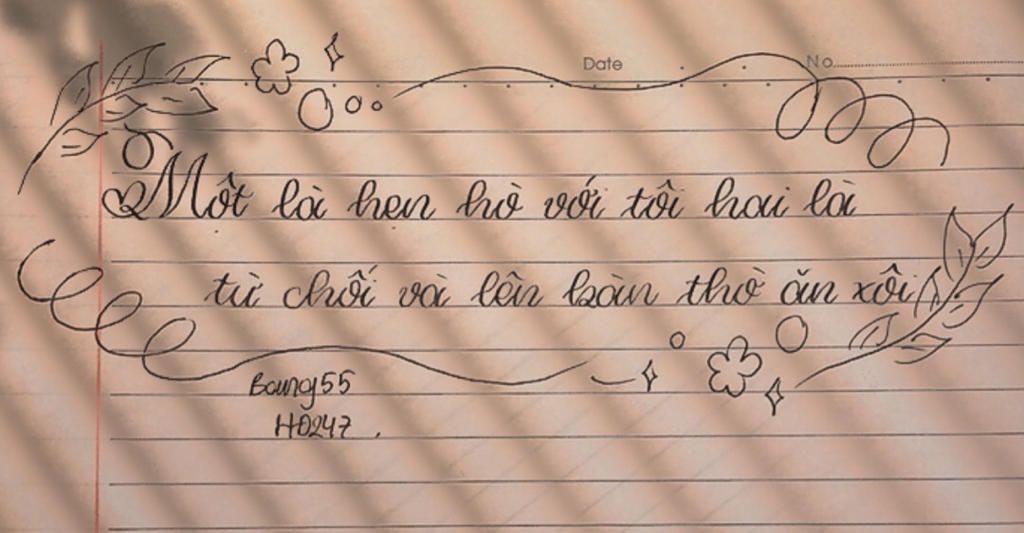 Date
No
Một là hẹn hò với tôi hai là
từ chối và lên bàn thờ ăn xôi
Baung55
HD247